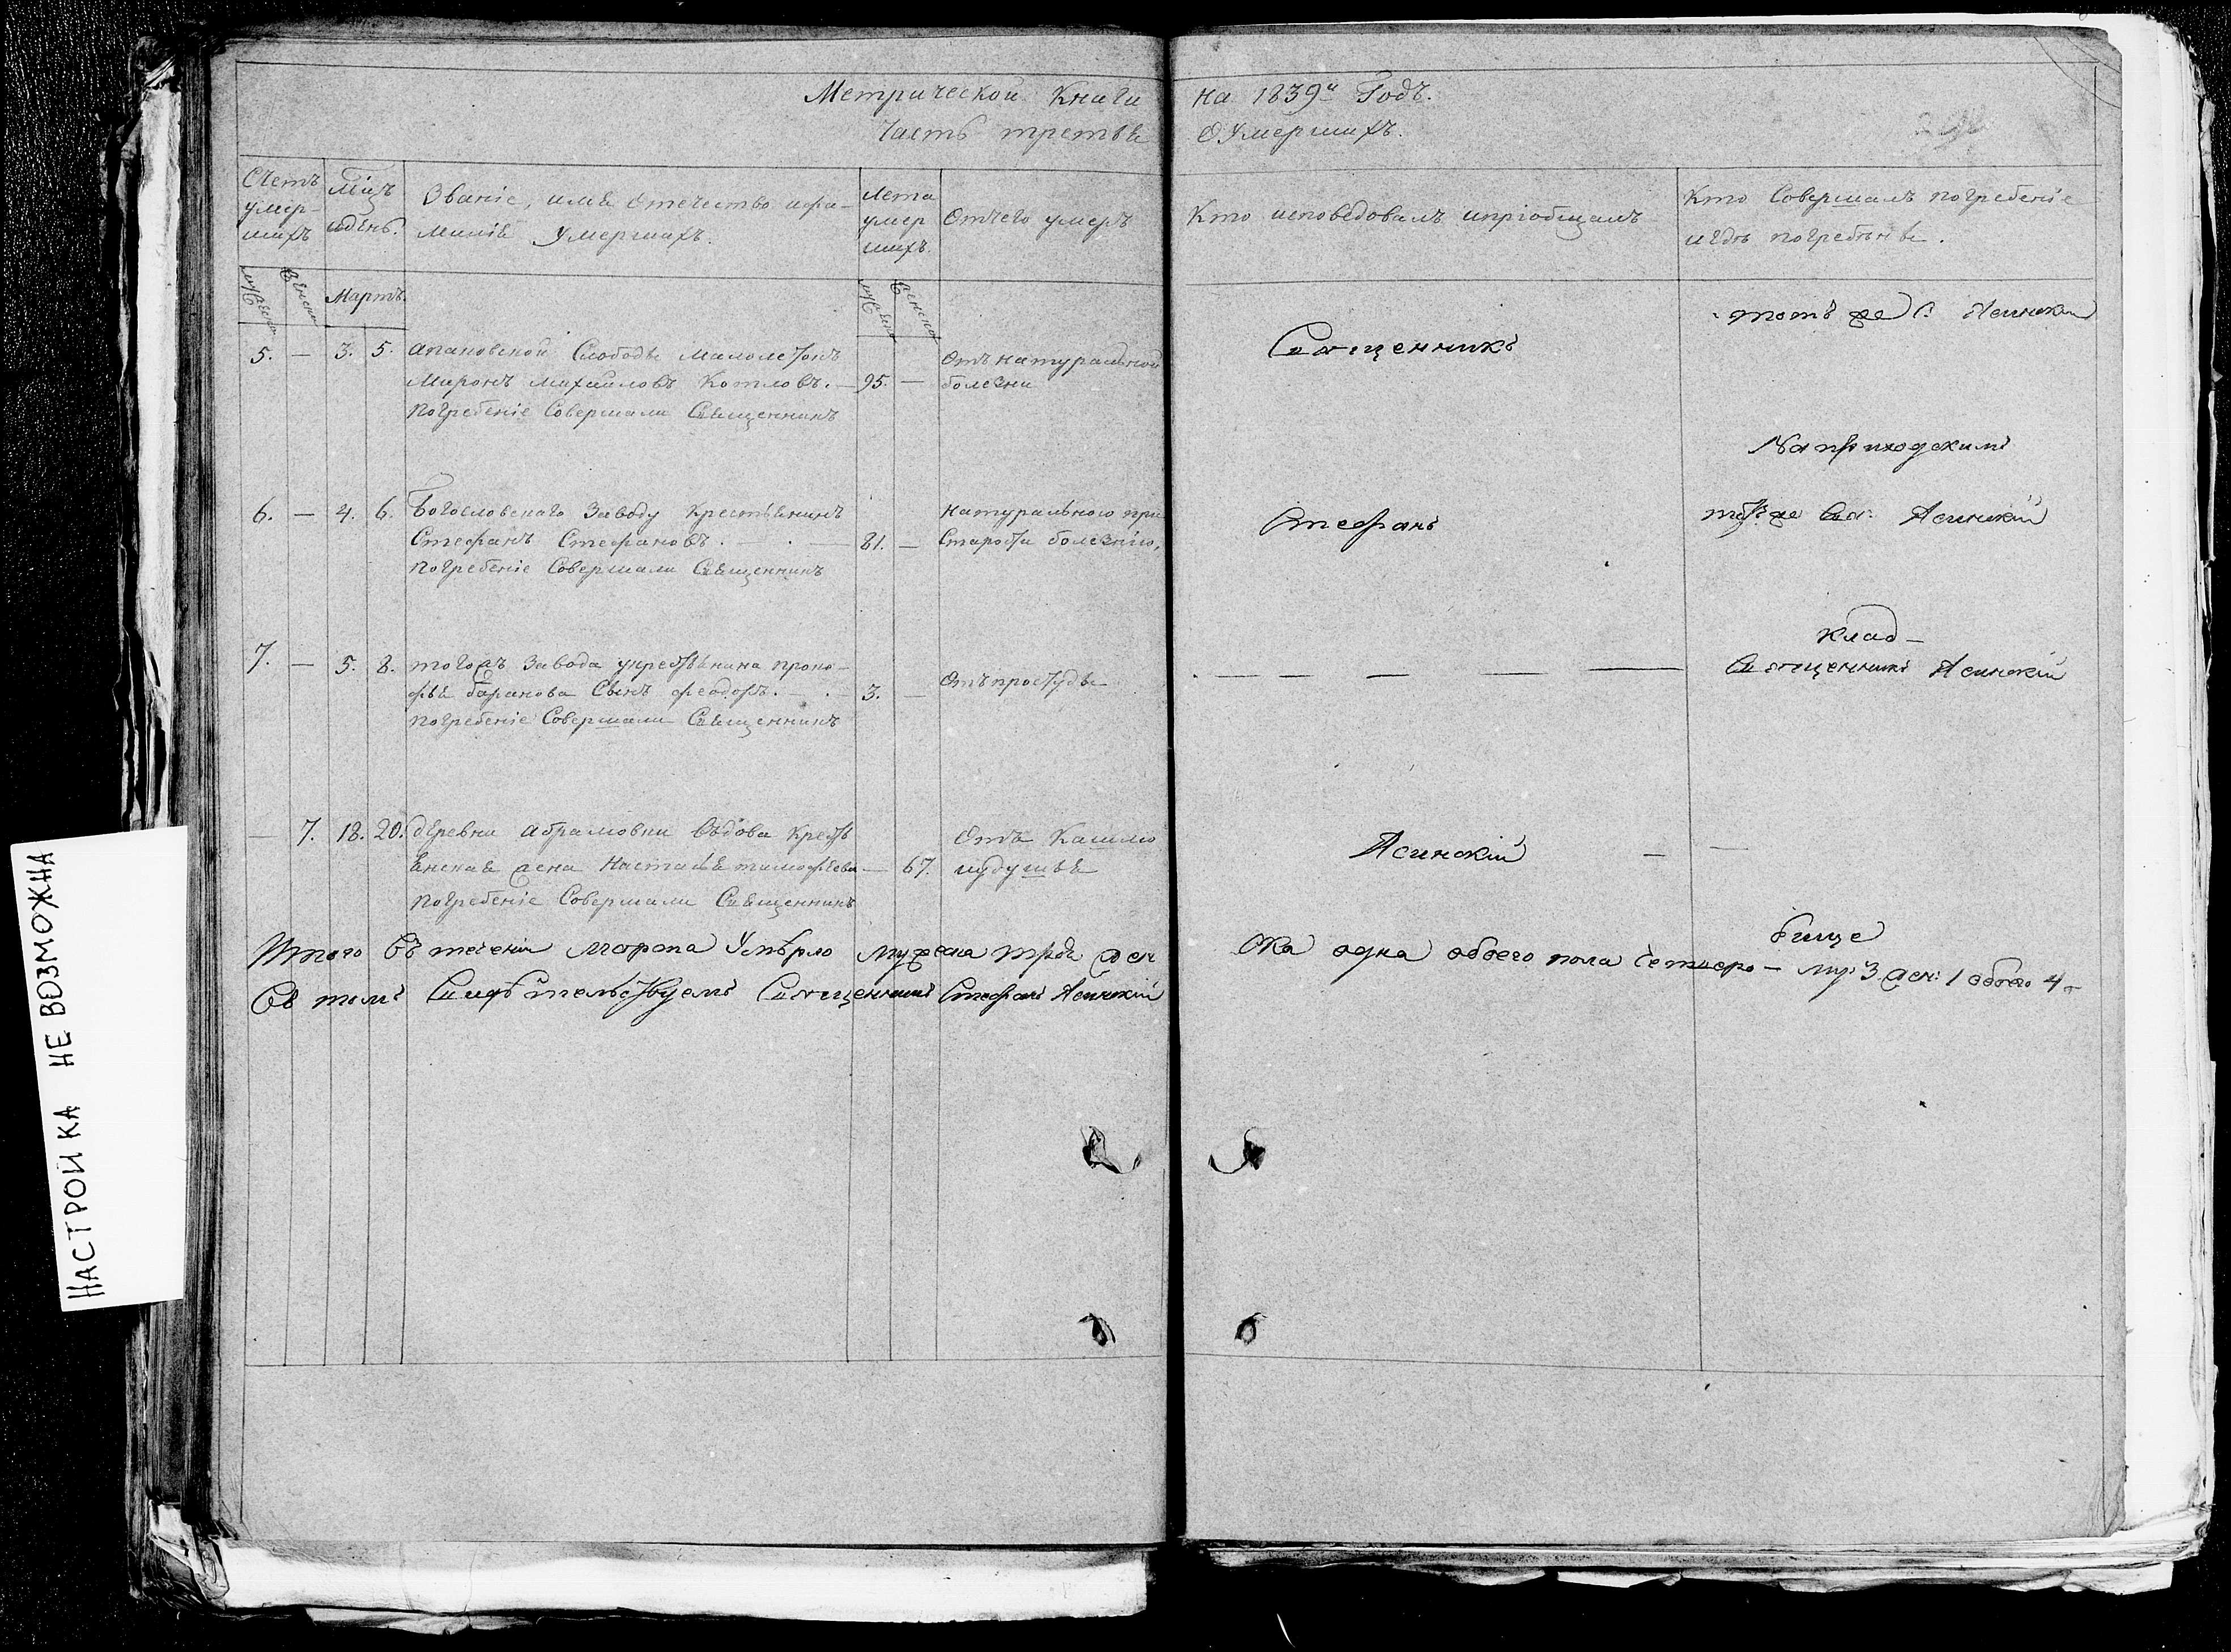 Метрической Книги на 1839й Годъ.
Часть третья О Умершихъ.
Счетъ умерших
Мцъ идень.
Званіе, имя отечество ифамилія Умершихъ.
Лета умерших.
Отчего умеръ
Кто исповедовалъ ипріобщалъ
Кто Совершалъ погребеніе
игдъ погребены.
Мартъ.
5. — 3. 5. Апановской Слободы Малолетокъ
Миронъ Михайловъ Котловъ. — 95. —
Погребеніе Совершали Священникъ
Отънатуральной
болезни
Священникъ
тотъ же С. Ясинскій
На приходскимъ
6. — 4. 6. Богословскаго Заводу Крестьянинъ
Стефанъ Стефановъ. — . — 81. —
Погребеніе Совершали Священникъ
Натуральною при
Старости болезнію,
Стефанъ
тотъ же Свя: Ясинскій
клад-
7. — 5. 8. того жъ Завода укрестьянина проко-
фья баранова Сынъ феодоръ. — . — 3. —
Погребеніе Совершали Священникъ
Отъпростуды
Священникъ Ясинскій
— 7. 18. 20. деревни абрамовки въдова Кресть
янская жена Настасья тимофѣева — 67.
Погребеніе Совершали Священникъ
Отъ Кашлю
иудушья
Ясинскій — —
бище
Итого Въ теченіи марта Умѣрло мужеска трое женска одна обоего пола четверо — му: 3 жен: 1 обоего 4
Въ томъ Свидѣтельствуемъ Священникъ Стефанъ Ясинскій
НАСТРОЙКА НЕ ВОЗМОЖНА